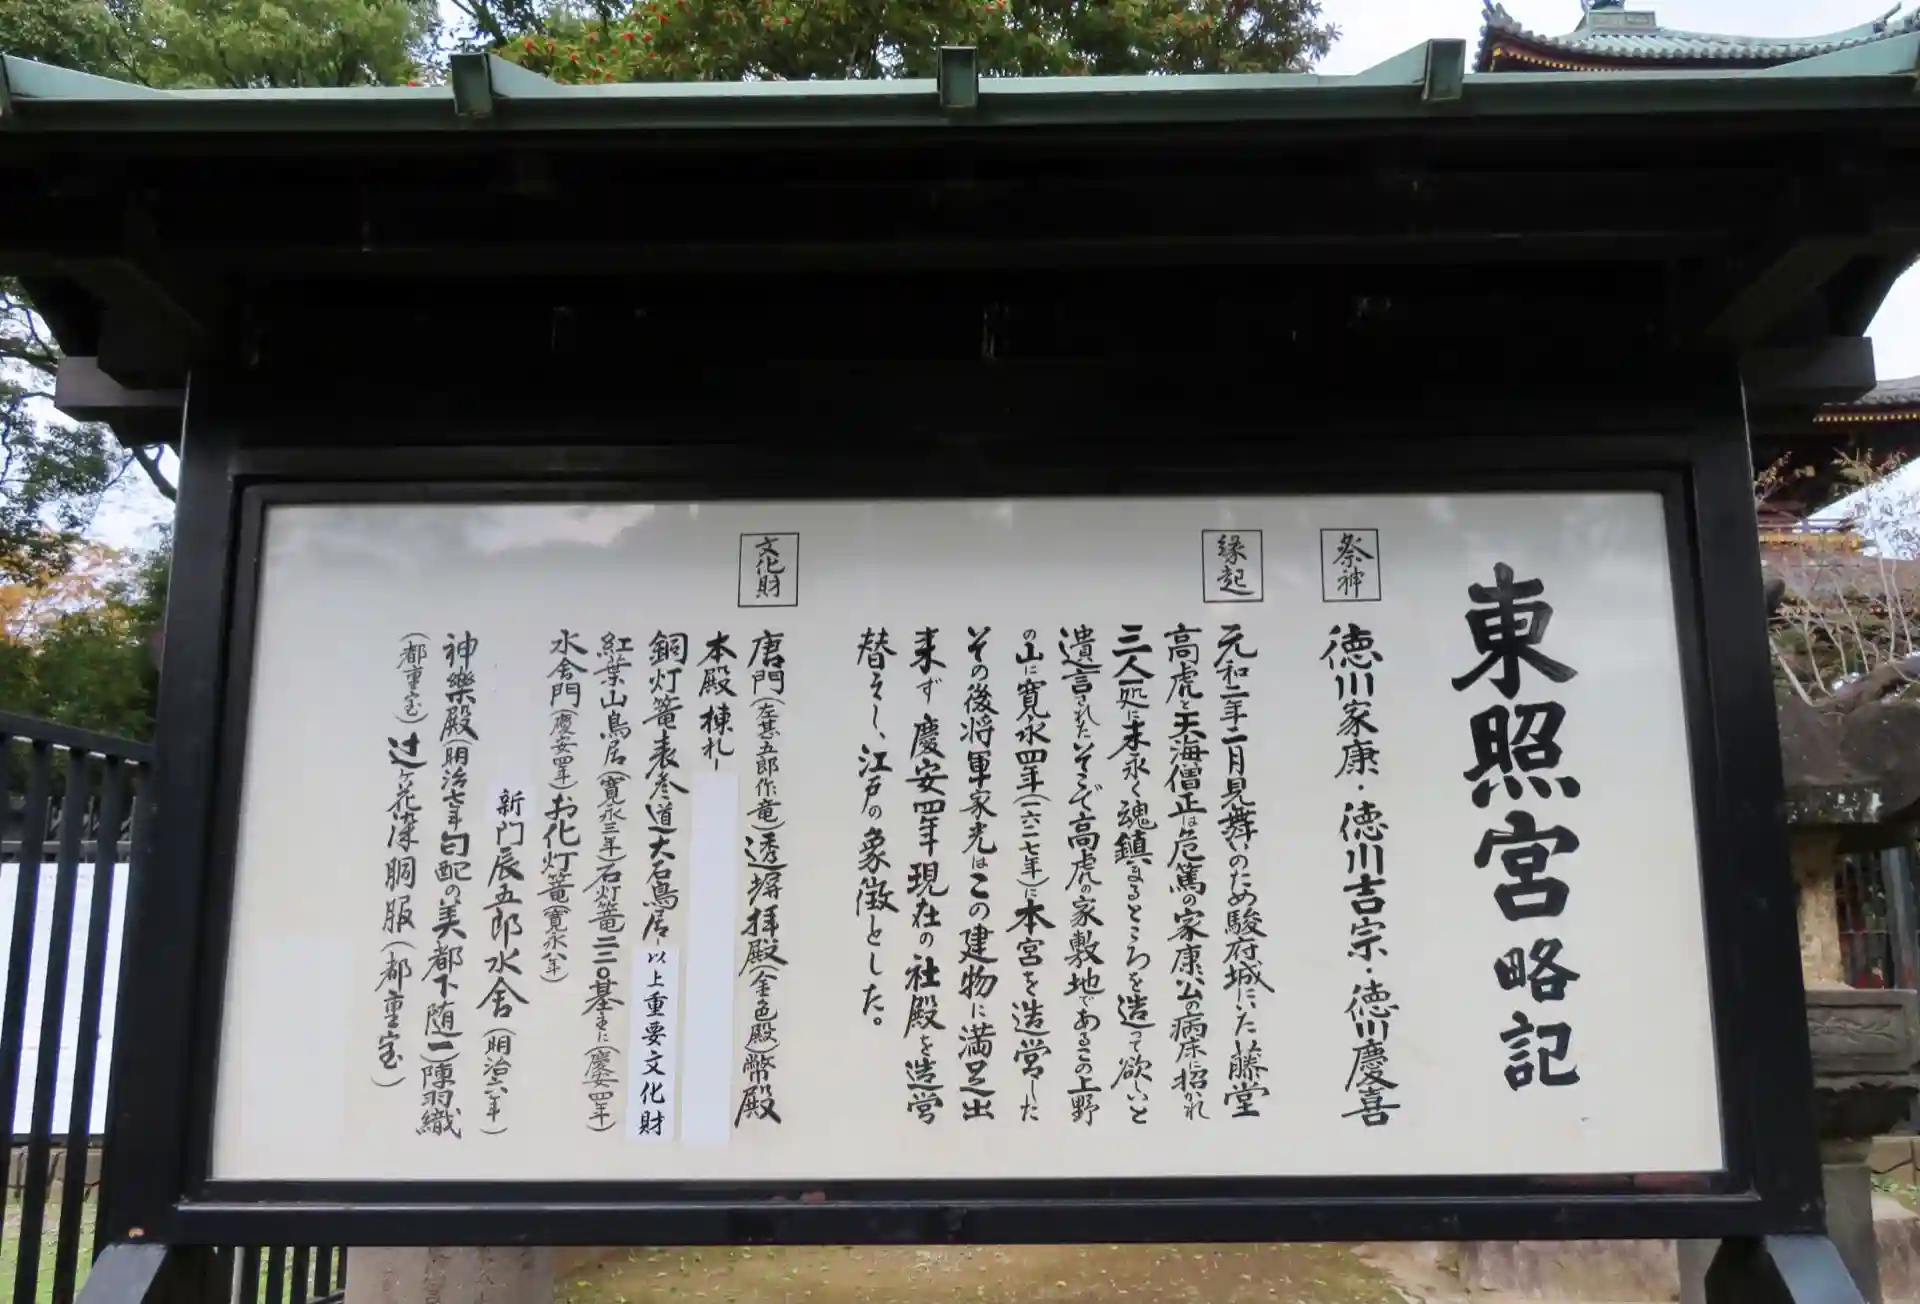 東照宮略記
祭神
徳川家康・徳川吉宗・徳川慶喜
縁起
元和二年二月見舞いのため駿府城にいた藤堂
高虎と天海僧正は危篤の家康公の病床に招かれ
三人一処に末永く魂鎮まるところを造って欲しいと
遺言されたそこで高虎の家敷地であるこの上野
の山に寛永四年(一六二七年)に本宮を造営した
その後将軍家光はこの建物に満足出
来ず慶安四年現在の社殿を造営
替えし、江戸の象徴とした。
文化財
唐門(左甚五郎作竜)透塀拝殿(金色殿)幣殿
本殿棟札
銅灯篭表参道大石鳥居以上重要文化財
紅葉山鳥居(寛永三年)石灯篭二二〇基(慶安四年)
水舎門(慶安四年)お化灯篭(寛永八年)
新門辰五郎水舎(明治六年)
神樂殿(明治七年)匂配の美都下随一)陣羽織
(都重宝)辻ヶ花染胴服(都重宝)